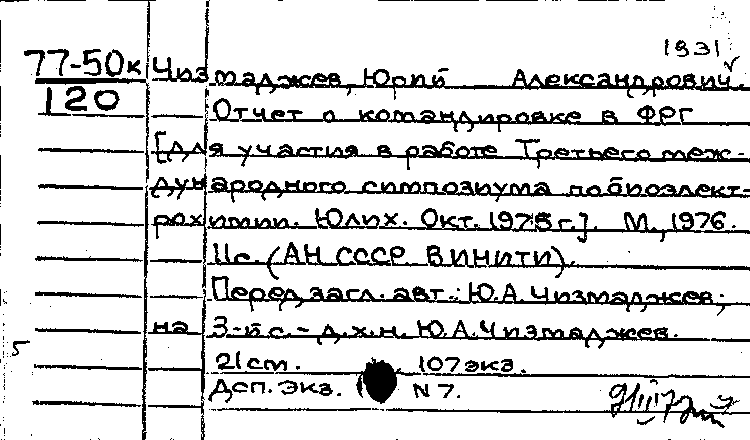 1931
77-50к Чизмаджев, Юрий Александрович.
120 Отчет о командировке в ФРГ
[для участия в работе Третьего меж-
дународного симпозиума по биоэлект-
рохимии. Юлих. Окт. 1975 г.]. М., 1976.
11с. (АН СССР ВИНИТИ).
Перед загл. авт.: Ю.А. Чизмаджев;
на 3-й с. - д.х.н. Ю.А. Чизмаджев.
21 ст. 107 экз.
Дсп. Экз. N 7.
5